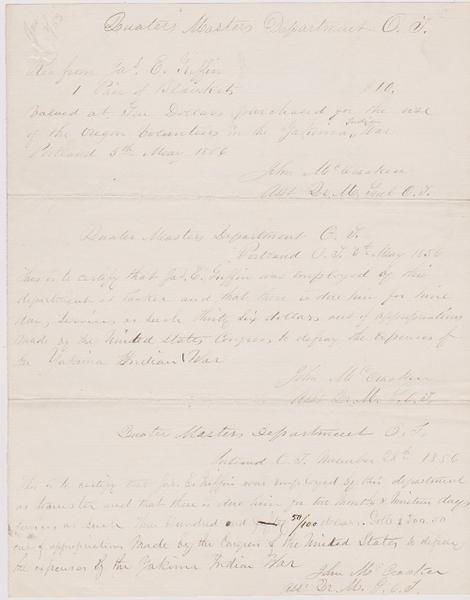 Quater Masters Department O. T.
from Jas. E. Griffin
1 Pair of Blankets $10.
Valued at Ten Dollars purchased for the use
of the Oregon Volunteers in the Yakima Indian War
Portland 5th May 1856
John McCracken
Asst Qr. M. Genl O. T.
Quater Masters Department O. T.
Portland O. T. 5th May 1856
This is to certify that Jas. E. Griffin was employed by this
department as Packer and that there is due him for nine
days services as such thirty six dollars out of appropriations
made by the United States Congress to defray the expenses of
the Yakima Indian War
John McCracken
Asst Qr. M. G. O. T.
Quater Masters Department O. T.
Portland O. T. November 28th 1856
This is to certify that Jas. E. Griffin was employed by this department
as teamster and that there is due him for two months & nineteen days
services as such Two Hundred and 50/100 dollars
out of appropriations made by the Congress of the United States to defray
the expenses of the Yakima Indian War
John McCracken
Asst Qr. M. G. O. T.